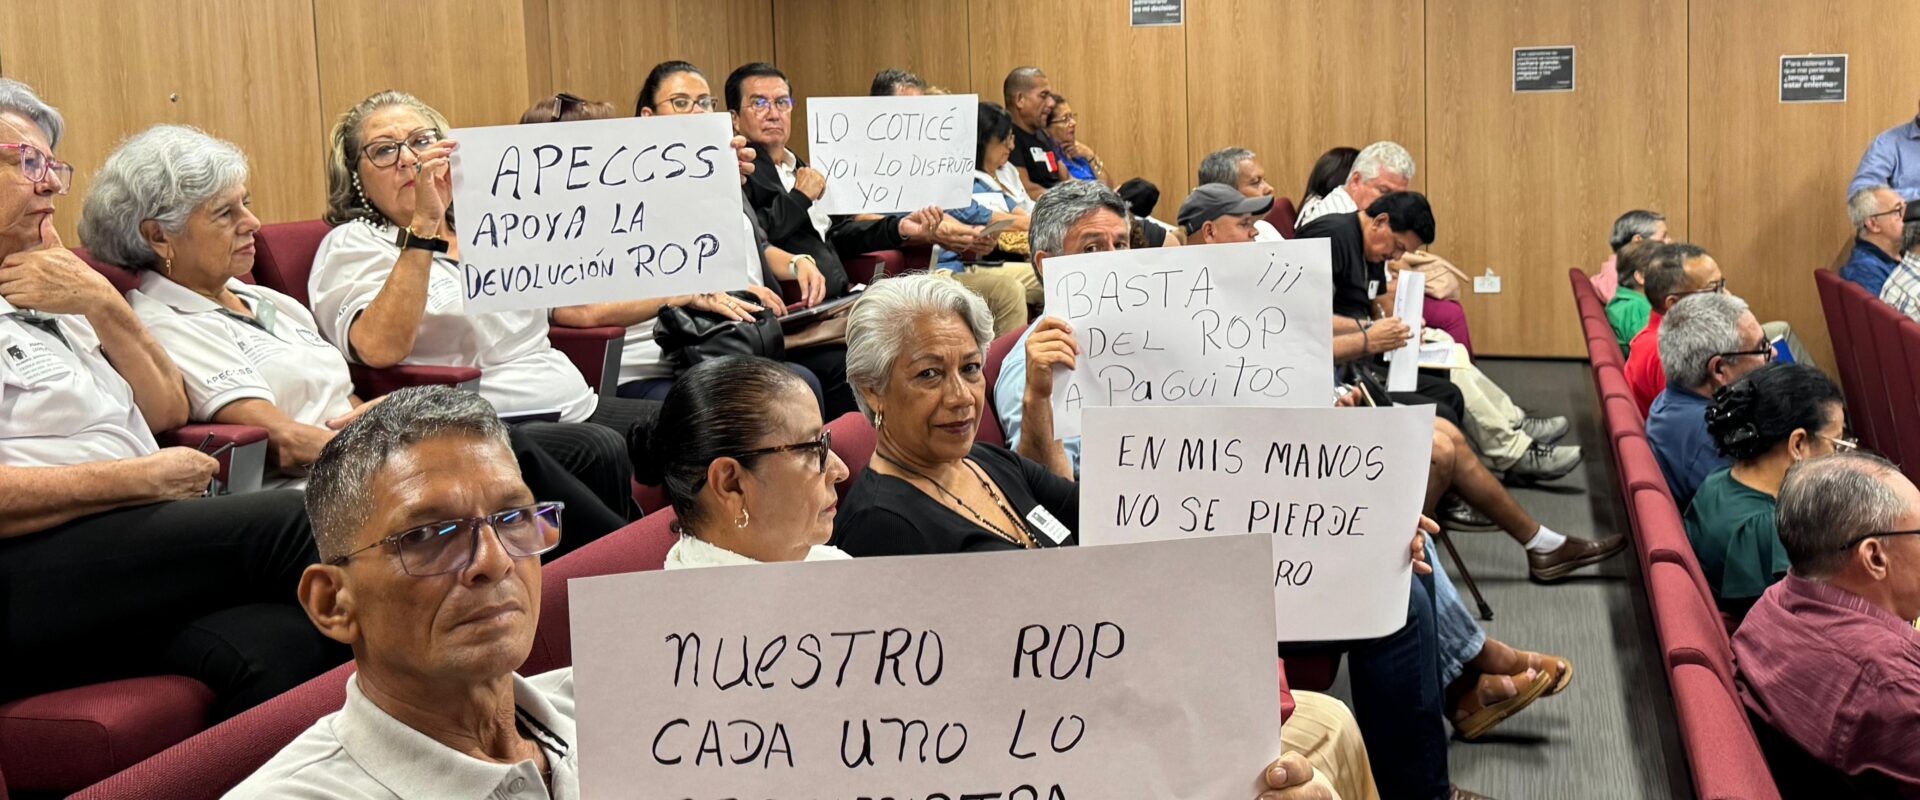 APECCSS
APOYA LA
DEVOLUCIÓN ROP
LO COTICÉ
YO¡ LO DISFRUTO
YO¡
BASTA ¡¡¡
DEL ROP
A PAGUITOS
EN MIS MANOS
NO SE PIERDE
RO
NUESTRO ROP
CADA UNO LO
es mi decisión
Para obtener lo
que me pertenece
¿tengo que
estar enferma?